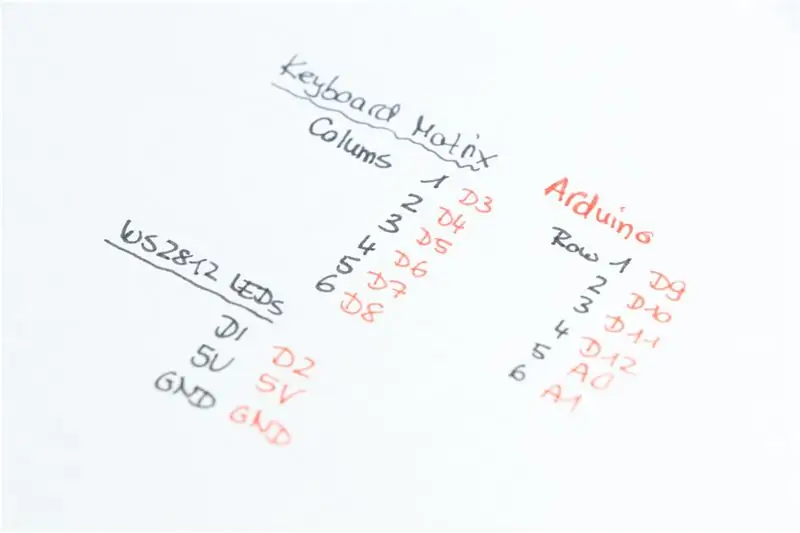 Keyboard Matrix
Colums 1 D3
2 D4
3 D5
4 D6
5 D7
6 D8
Arduino
Row 1 D9
2 D10
3 D11
4 D12
5 A0
6 A1
WS2812 LEDs
DI D2
5V 5V
GND GND